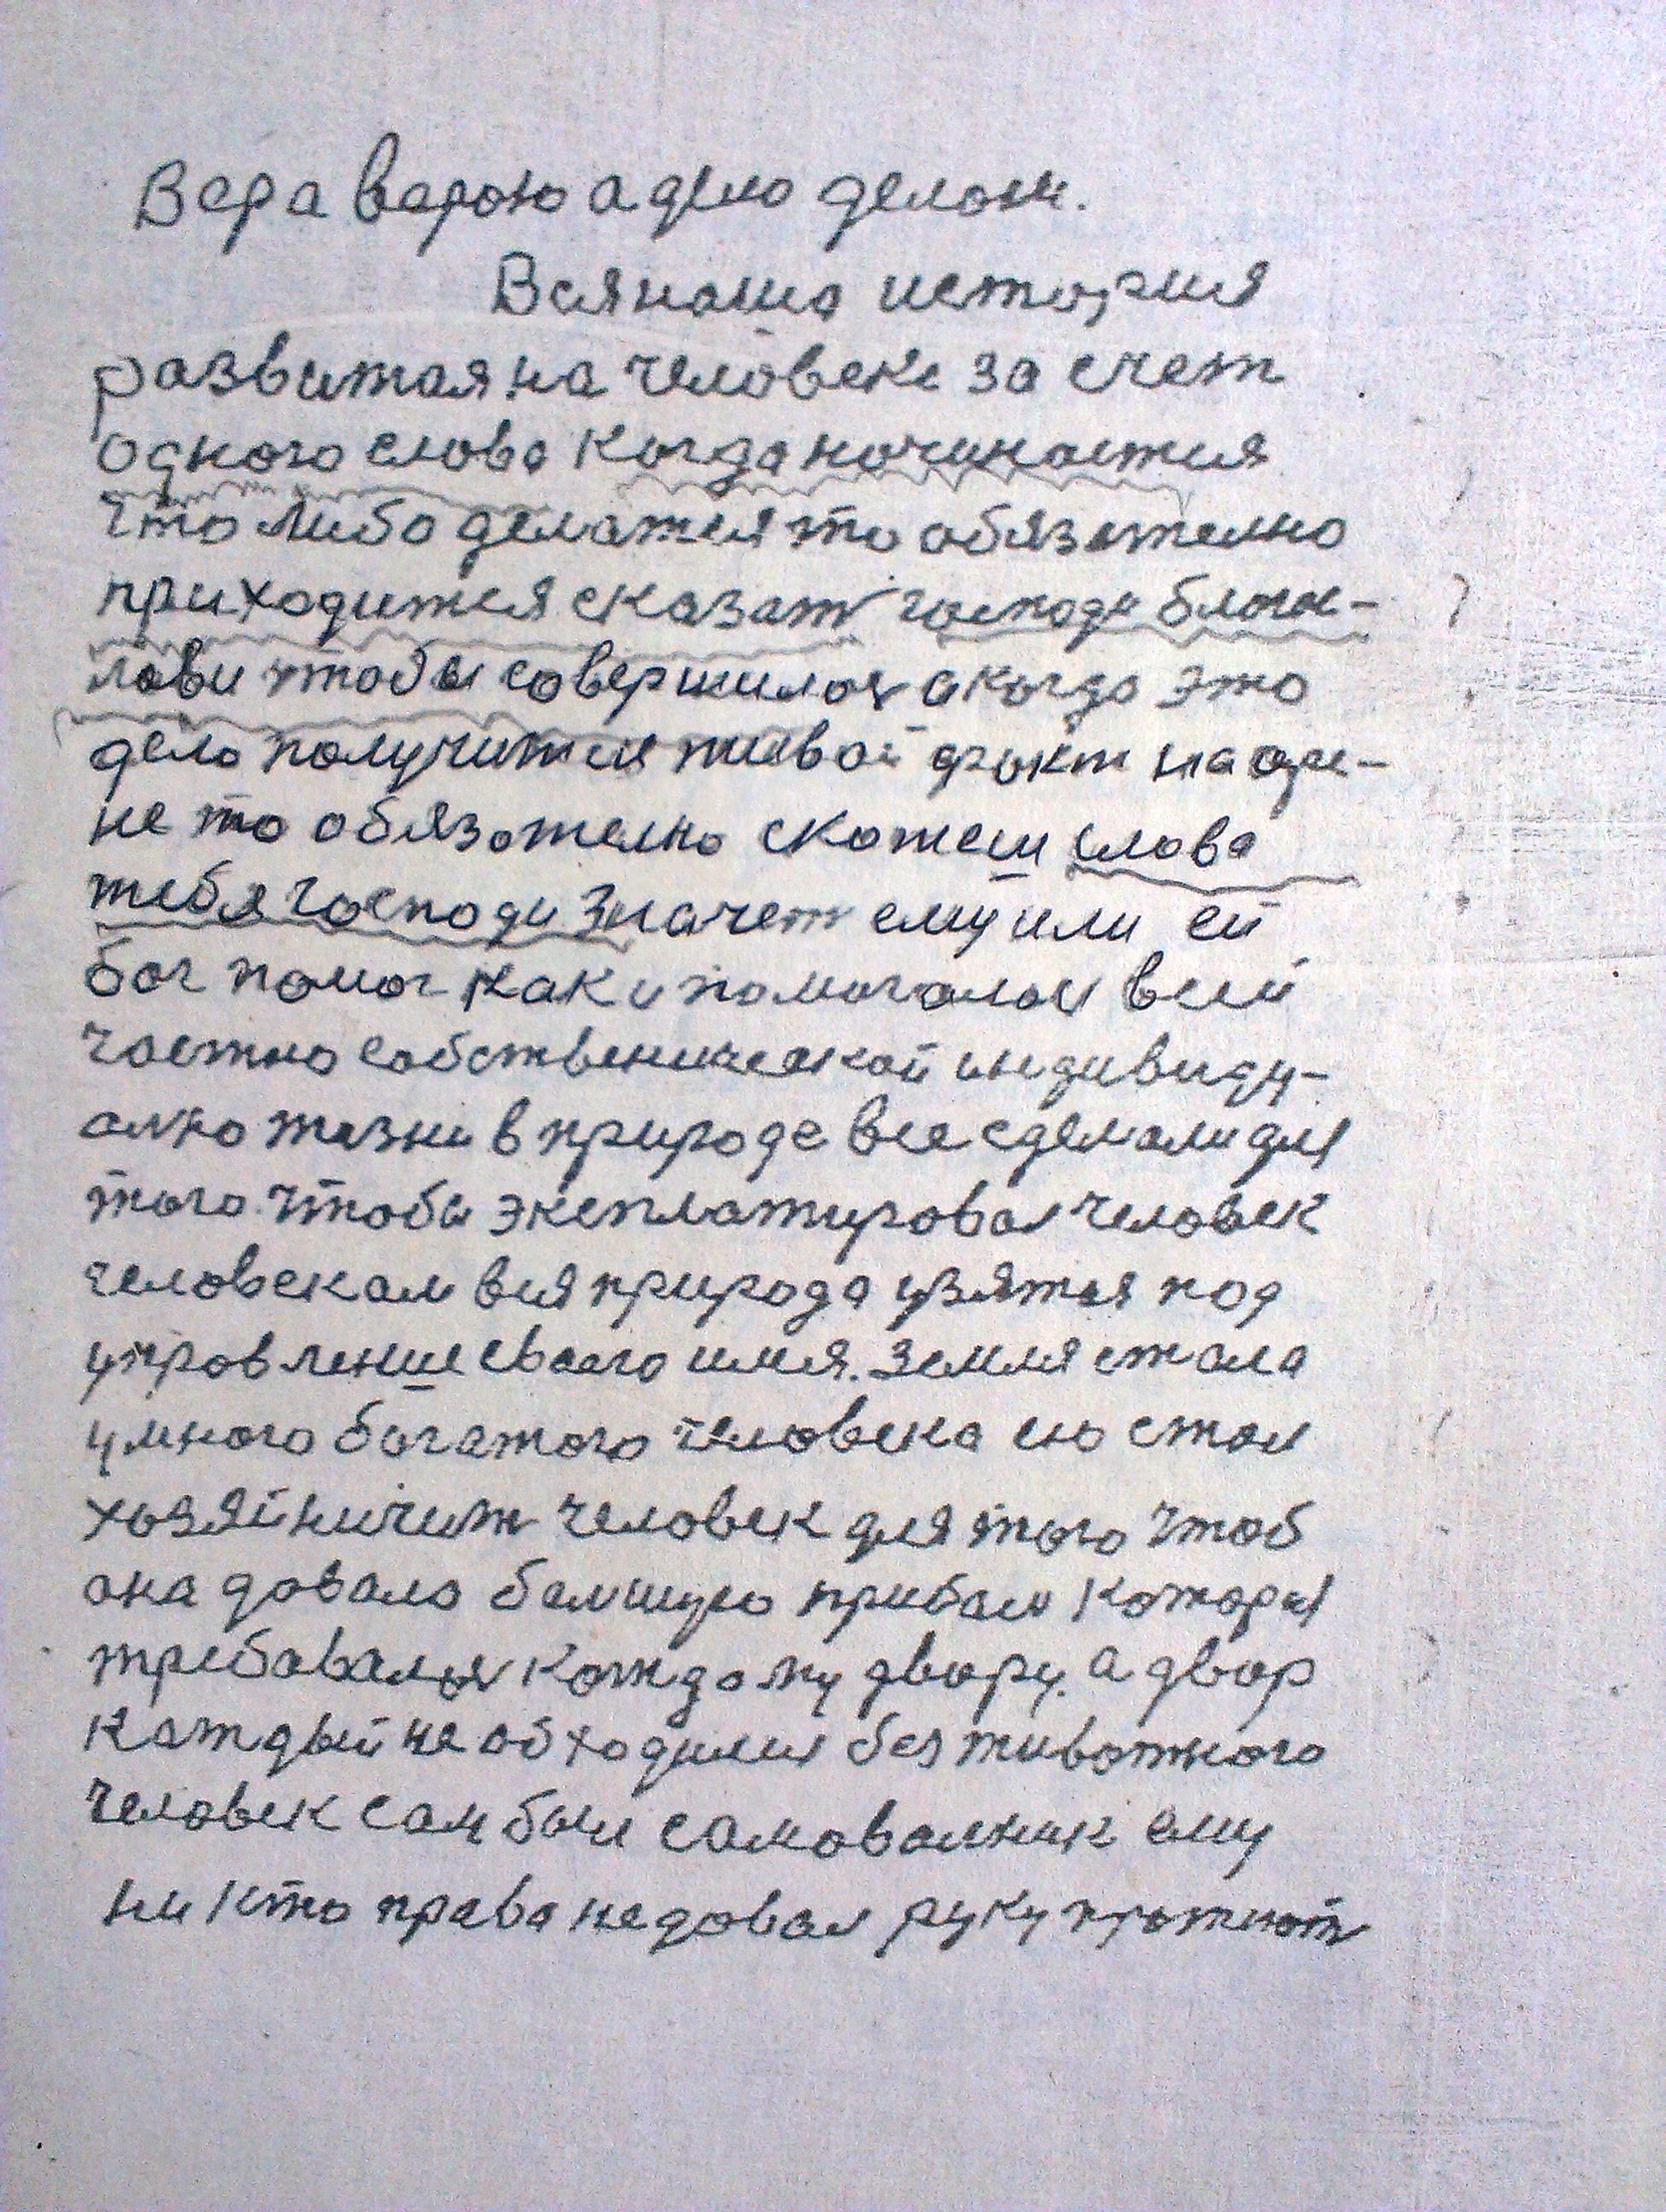 Вера верою а дело делом.
Вся наша история
развитая на человеке за счет
одного слова когда начинается
что либо делатся то обязателно
приходится сказат господи благос-
лови чтобы совершилос а когда это
дело получится живой факт на аре-
не то обязателно скажеш слава
тебя господи значет ему или ей
бог помог как и помогалос всей
частно собственической индивиду-
ално жизни в природе все сделали для
того чтобы эксплатировал человек
человекам вся природа узятая под
управление своего имя. Земля стала
умного богатого человека ею стал
хозяйничит человек для того чтоб
она довала балшую прибал которые
требовалос кождому двору. а двор
каждый не обходился без животного
человек сам был самоволник ему
ни кто права не довал руку